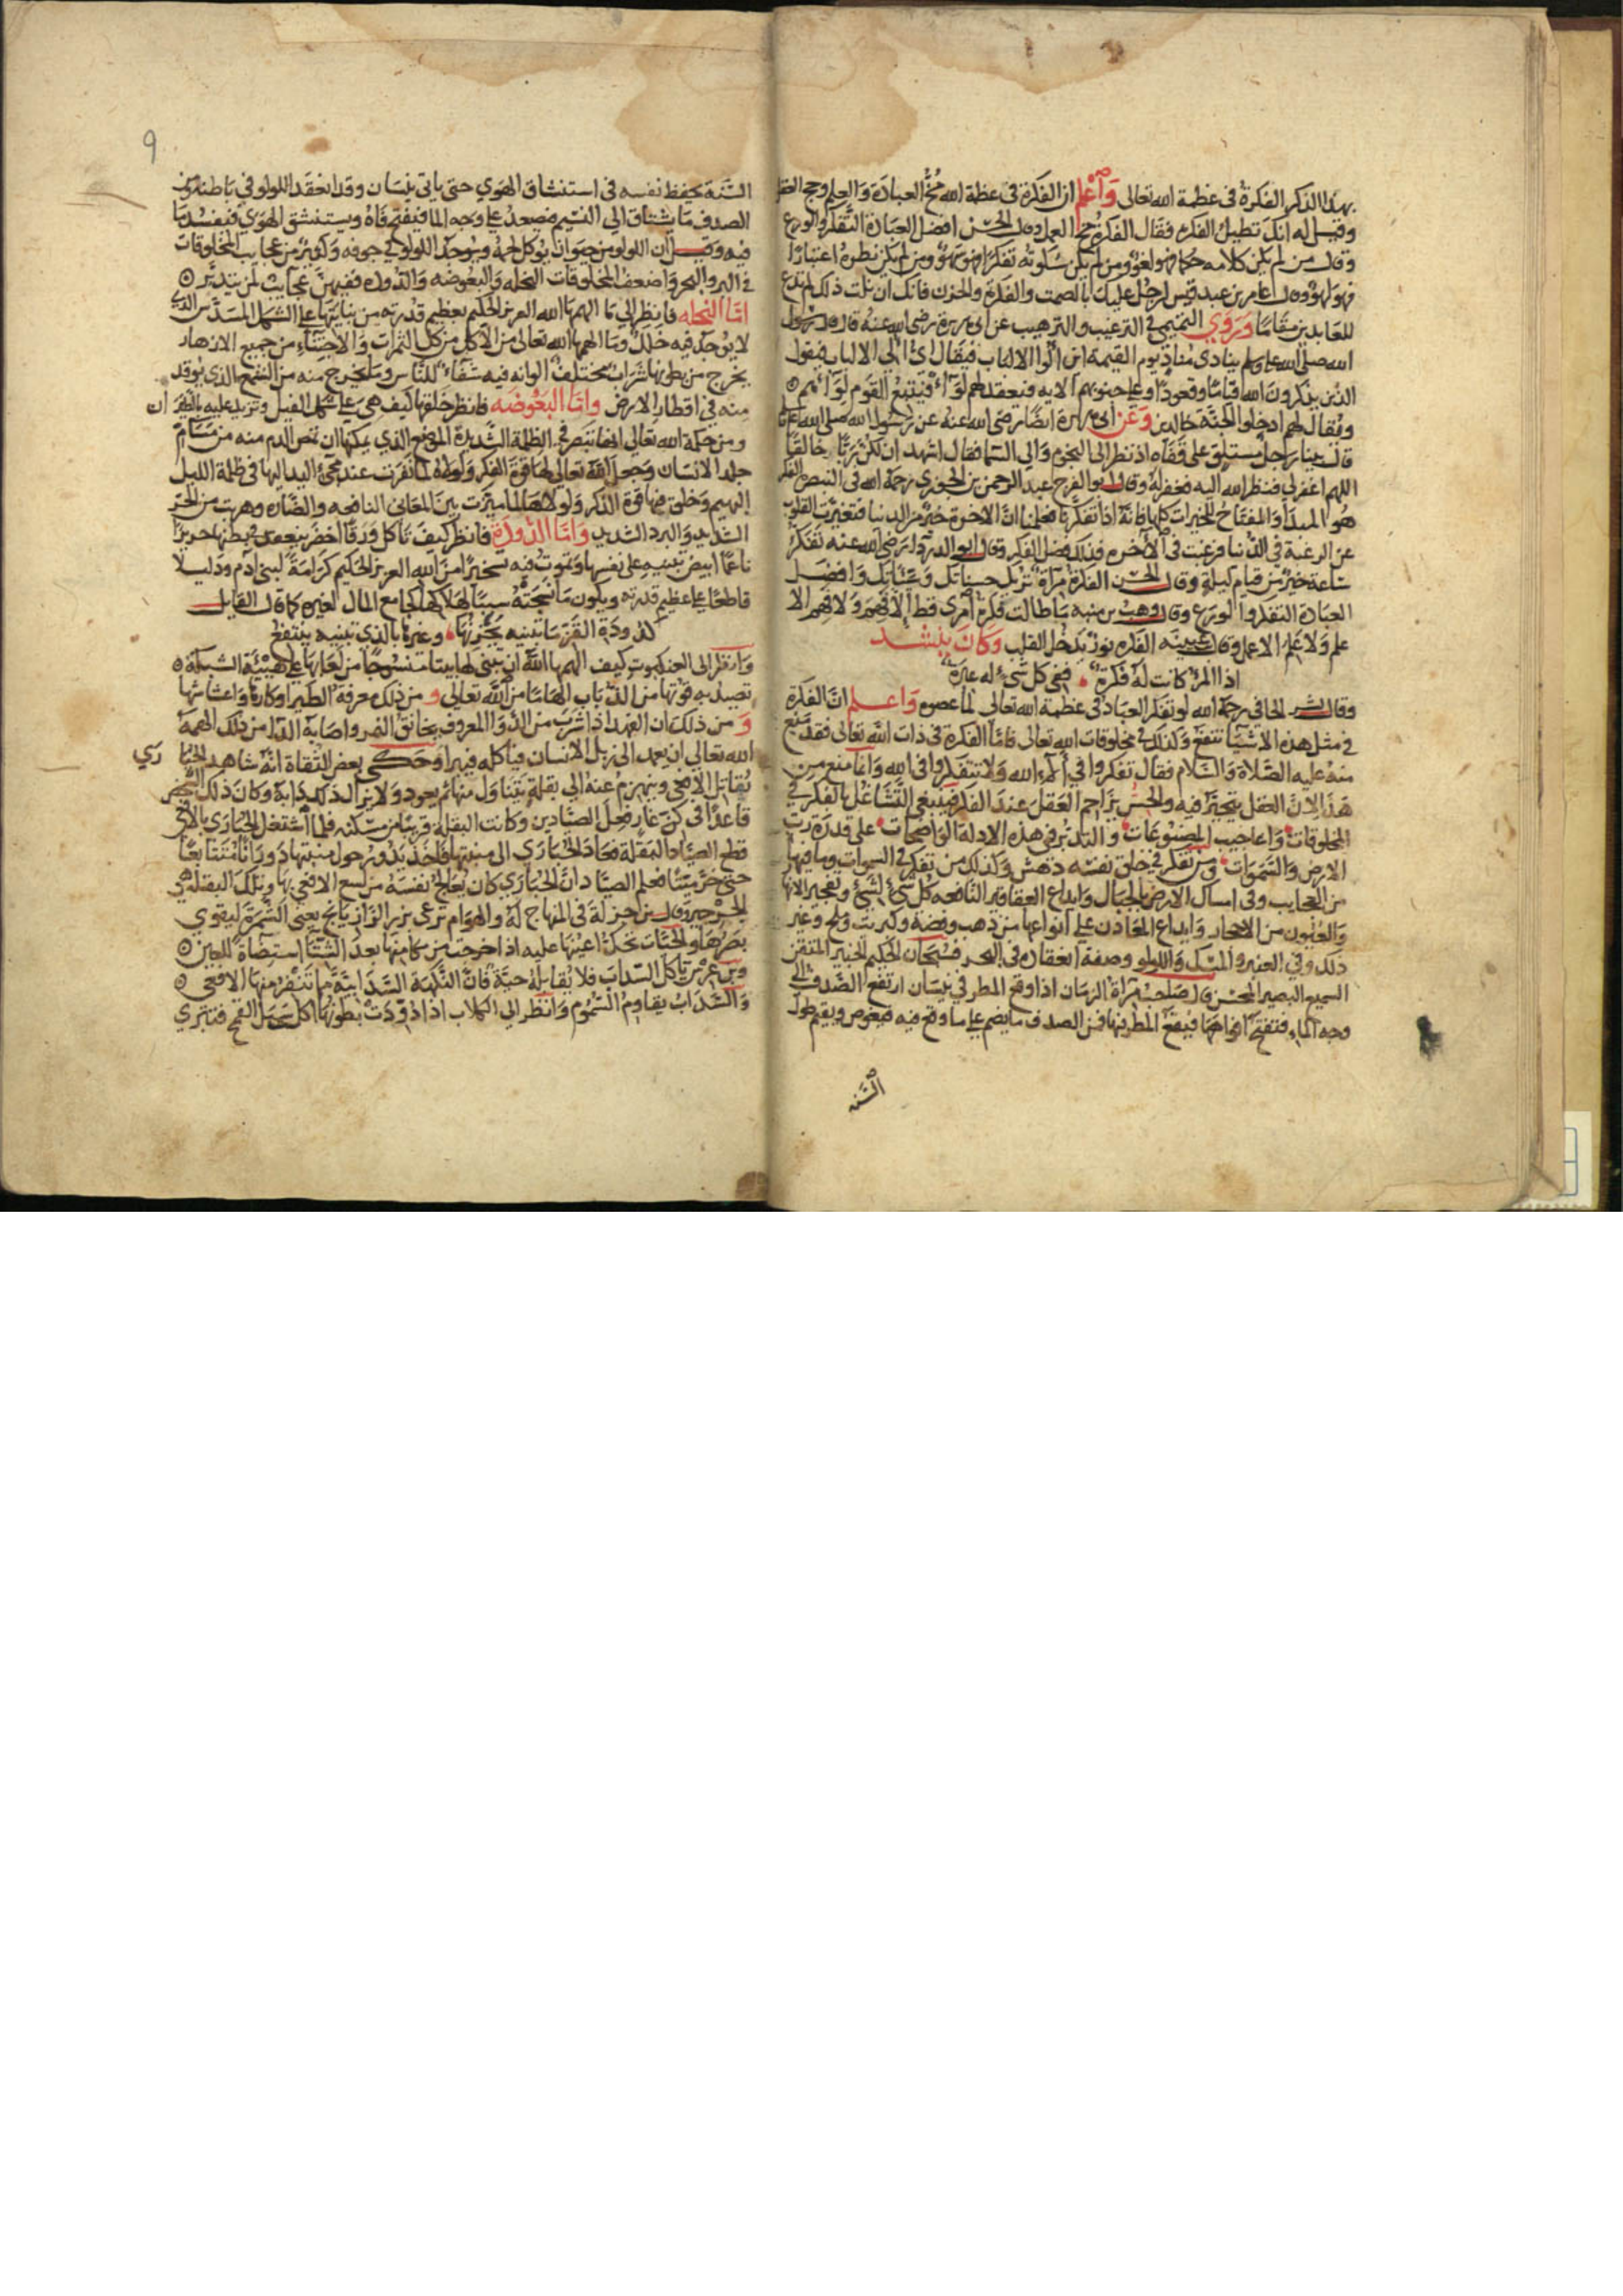 بهذا الذكر الفكرة في عظمة الله تعالى وَاعْلم ان الفكرة في عظمة الله مُخُّ العبادة والعلم وحج العقل
وقيل له انك تطيل الفكرة فقال الفكرة مخ العمل وقال الحسن افضل العبادة التفكر والورع
وقال من لم يكن كلامه حكما فهو لغو ومن لم يكن سكوته تفكرا فهو سهو ومن لم يكن نظره اعتبارا
فهو لهو وقال عامر بن عبد قيس لرجل عليك بالصمت والفكرة والحزن فانك ان نلت ذلك لم تدع
للعابدين مقاما وَرَوَي التيمي في الترغيب والترهيب عن ابي هريرة رضي الله عنه قال قال رسول
الله صلى الله عليه وسلم ينادى مناد يوم القيمة اين اولوا الالباب فيقال اي اولي الالباب فيقول
الذين يذكرون الله قياما وقعودا وعلى جنوبهم الايه فيعقد لهم لواء فيتبع القوم لواءهم
ويقال لهم ادخلوا الجنة خالدين وَعَن ابي هريرة ايضا رضي الله عنه عن رسول الله صلى الله عليه
قال بينا رجل مستلق على قفاه اذ نظر الى النجوم والى السما فقال اشهد ان لكن ربا خالقا
اللهم اغفر لي فنظر الله اليه فغفر له وقال ابو الفرج عبد الرحمن بن الجوزي رحمة الله في التبصرة الفكر
هو المبدأ والمفتاح للخيرات كلها فانه اذا تفكرنا فعلمنا ان الاخرة خير من الدنيا فتغيرت القلوب
عن الرغبة في الدنيا فرغبت في الاخره فذلك فضل الفكر وقال ابو الدرداء رضي الله عنه تفكر
ساعة خير من قيام ليلة وقال الحسن الفكرة مرآة تريك حسناتك وسيئاتك وافضل
العبادة التفكر والورع وقال وهب بن منبه ما طالت فكرة امرئ قط الا فهم ولا فهم الا
علم ولا علم الا عمل وقال عيينه الفكره نور يدخل القلب وَكَانَ يُنشد
اذا المرء كانت له فكرة ففي كل شيء له عبرة
وقال بشر الحافي رحمة الله لو تفكر العباد في عظمة الله تعالى لما عصوه وَاعلم ان الفكرة
في مثل هذه الاشيا تنفع وكذلك في مخلوقات الله تعالى فاما الفكرة في ذات الله تعالى فقد منع
منه عليه الصلاة والسلام فقال تفكروا في آلاء الله ولا تتفكروا في الله وانما منع من
هذا لان العقل يتحير فيه والحس يزاحم العقل عند الفكر فينبغي التشاغل بالفكر في
المخلوقات واعاجيب المصنوعات والتدبر في هذه الادلة الواضحات على قدرة رب
الارض والسموات ومن تفكر في خلق نفسه دهش وكذلك من تفكر في السموات وما فيها
من العجايب وفي امساك الارض بالجبال وابداع العقاقير النافعه كل شيء لشيء وتفجير الانهار
والعيون من الاحجار وايداع المعادن على انواعها من ذهب وفضة وكبريت وملح وغير
ذلك وفي العنبر والمسك واللولو وصفة انعقاده في البحر فسبحان الحكيم الخبير المتقن
السميع البصير المحسن قال صاحب مرآة الزمان اذا وقع المطر في نيسان ارتفع الصدف الى
وجه الماء فتفتح افواهها فيقع المطر فيها فمن الصدف ما يضم على ما وقع فيه فيغوص ويقيم طول
السَّنة
9
السَّنة يحفظ نفسه في استنشاق الهوي حتى ياتي نيسان وقد انعقد اللولو في باطنه ومن
الصدف ما يشتاق الى النسيم فيصعد على وجه الما فيفتح فاه ويستنشق الهوي فيفسد ما
فيه وقيل ان اللولو من حيوان يوكل لحمه ويوجد اللولو في جوفه وكم من عجايب المخلوقات
في البر والبحر واضعف المخلوقات النحله والبعوضه والدوده ففيهن عجائب لمن يتدبر
امّا النحله فانظر الى ما الهمها الله العزيز الحكيم بعظيم قدرته من بنايتها على الشكل المسدس الذي
لا يوجد فيه خلل وما الهمها الله تعالى من الاكل من كل الثمرات والاجتناء من جميع الازهار
يخرج من بطونها شراب مختلف الوانه فيه شفاء للناس وما يخرج منه من الشمع الذي يوقد
منه في اقطار الارض وامّا البَعُوضَه فانظر خلقها كيف هي على شكل الفيل وتزيد عليه بالطيران
ومن حكمة الله تعالى انها تبصر في الظلمة الشديدة الموضع الذي يمكنها ان تمص الدم منه من مسام
جلد الانسان وجعل الله تعالى لها قوة الفكر ولولاه لما نفرت عند مجيء اليد اليها في ظلمة الليل
البهيم وخلق فيها قوة الذكر ولولاها لما ميزت بين المعاني النافعه والضارة وهربت من الحر
الشديد والبرد الشديد وَامّا الدُّودَة فانظر كيف تاكل ورقا اخضر فينعقد في بطنها حريرا
ناعما ابيض تبنيه على نفسها وتموت فيه تسخيرا من الله العزيز الحكيم كرامة لبني آدم ودليلا
قاطعا على عظيم قدرته ويكون ما نسجته سببا لهلاكها كجامع المال لغيره كما قال القايل
كدودة القز ما تبنيه يحزنها وغيرها بالذي تبنيه ينتفع
وانظر الى العنكبوت كيف الهمها الله ان تبني لها بيتا منسوجا من لعابها على هيئة الشبكة
تصيد به قوتها من الذباب الهاما من الله تعالى و من ذلك معرفة الطير اوكارها واعشاشها
وَ من ذلك ان الفهد اذا شرب من الدوا المعروف بخانق النمر واصابه الدا من ذلك الهمه
الله تعالى ان يعمد الى زبل الانسان فيأكله فيبرا وحكى بعض الثقاة انه شاهد الحُبَا رَي
تقاتل الافعى وينهزم عنه الى بقلة يتناول منها ثم يعود ولا يزال ذلك دابه وكان ذلك الشخص
قاعدا في كن غار فعل الصيادين وكانت البقلة قريبا من مسكنه فلما اشتغل الحباري بالافعى
قطع الصياد البقلة فعاد الحباري الى منبتها فاخذ يدور حول منبتها دورانا متتابعا
حتى خر ميتا فعلم الصياد ان الحباري كان يعالج نفسه من لسع الافعى بها وتلك البقلة هي
الجرجير قال بن جزلة في المنهاج له والهوام ترعى بزر الرازيانج يعني الشمرة ليقوي
بصرها والحيات تحك اعينها عليه اذا خرجت من مكامنها بعد الشتا استضاة للعين
وبن عرس ياكل السداب فلا يقابله حية فان النكهة السدابية مما تنفر منها الافعى
والسداب يقاوم السموم وانظر الى الكلاب اذا دودت بطونها اكل سنبل القمح فتبتري